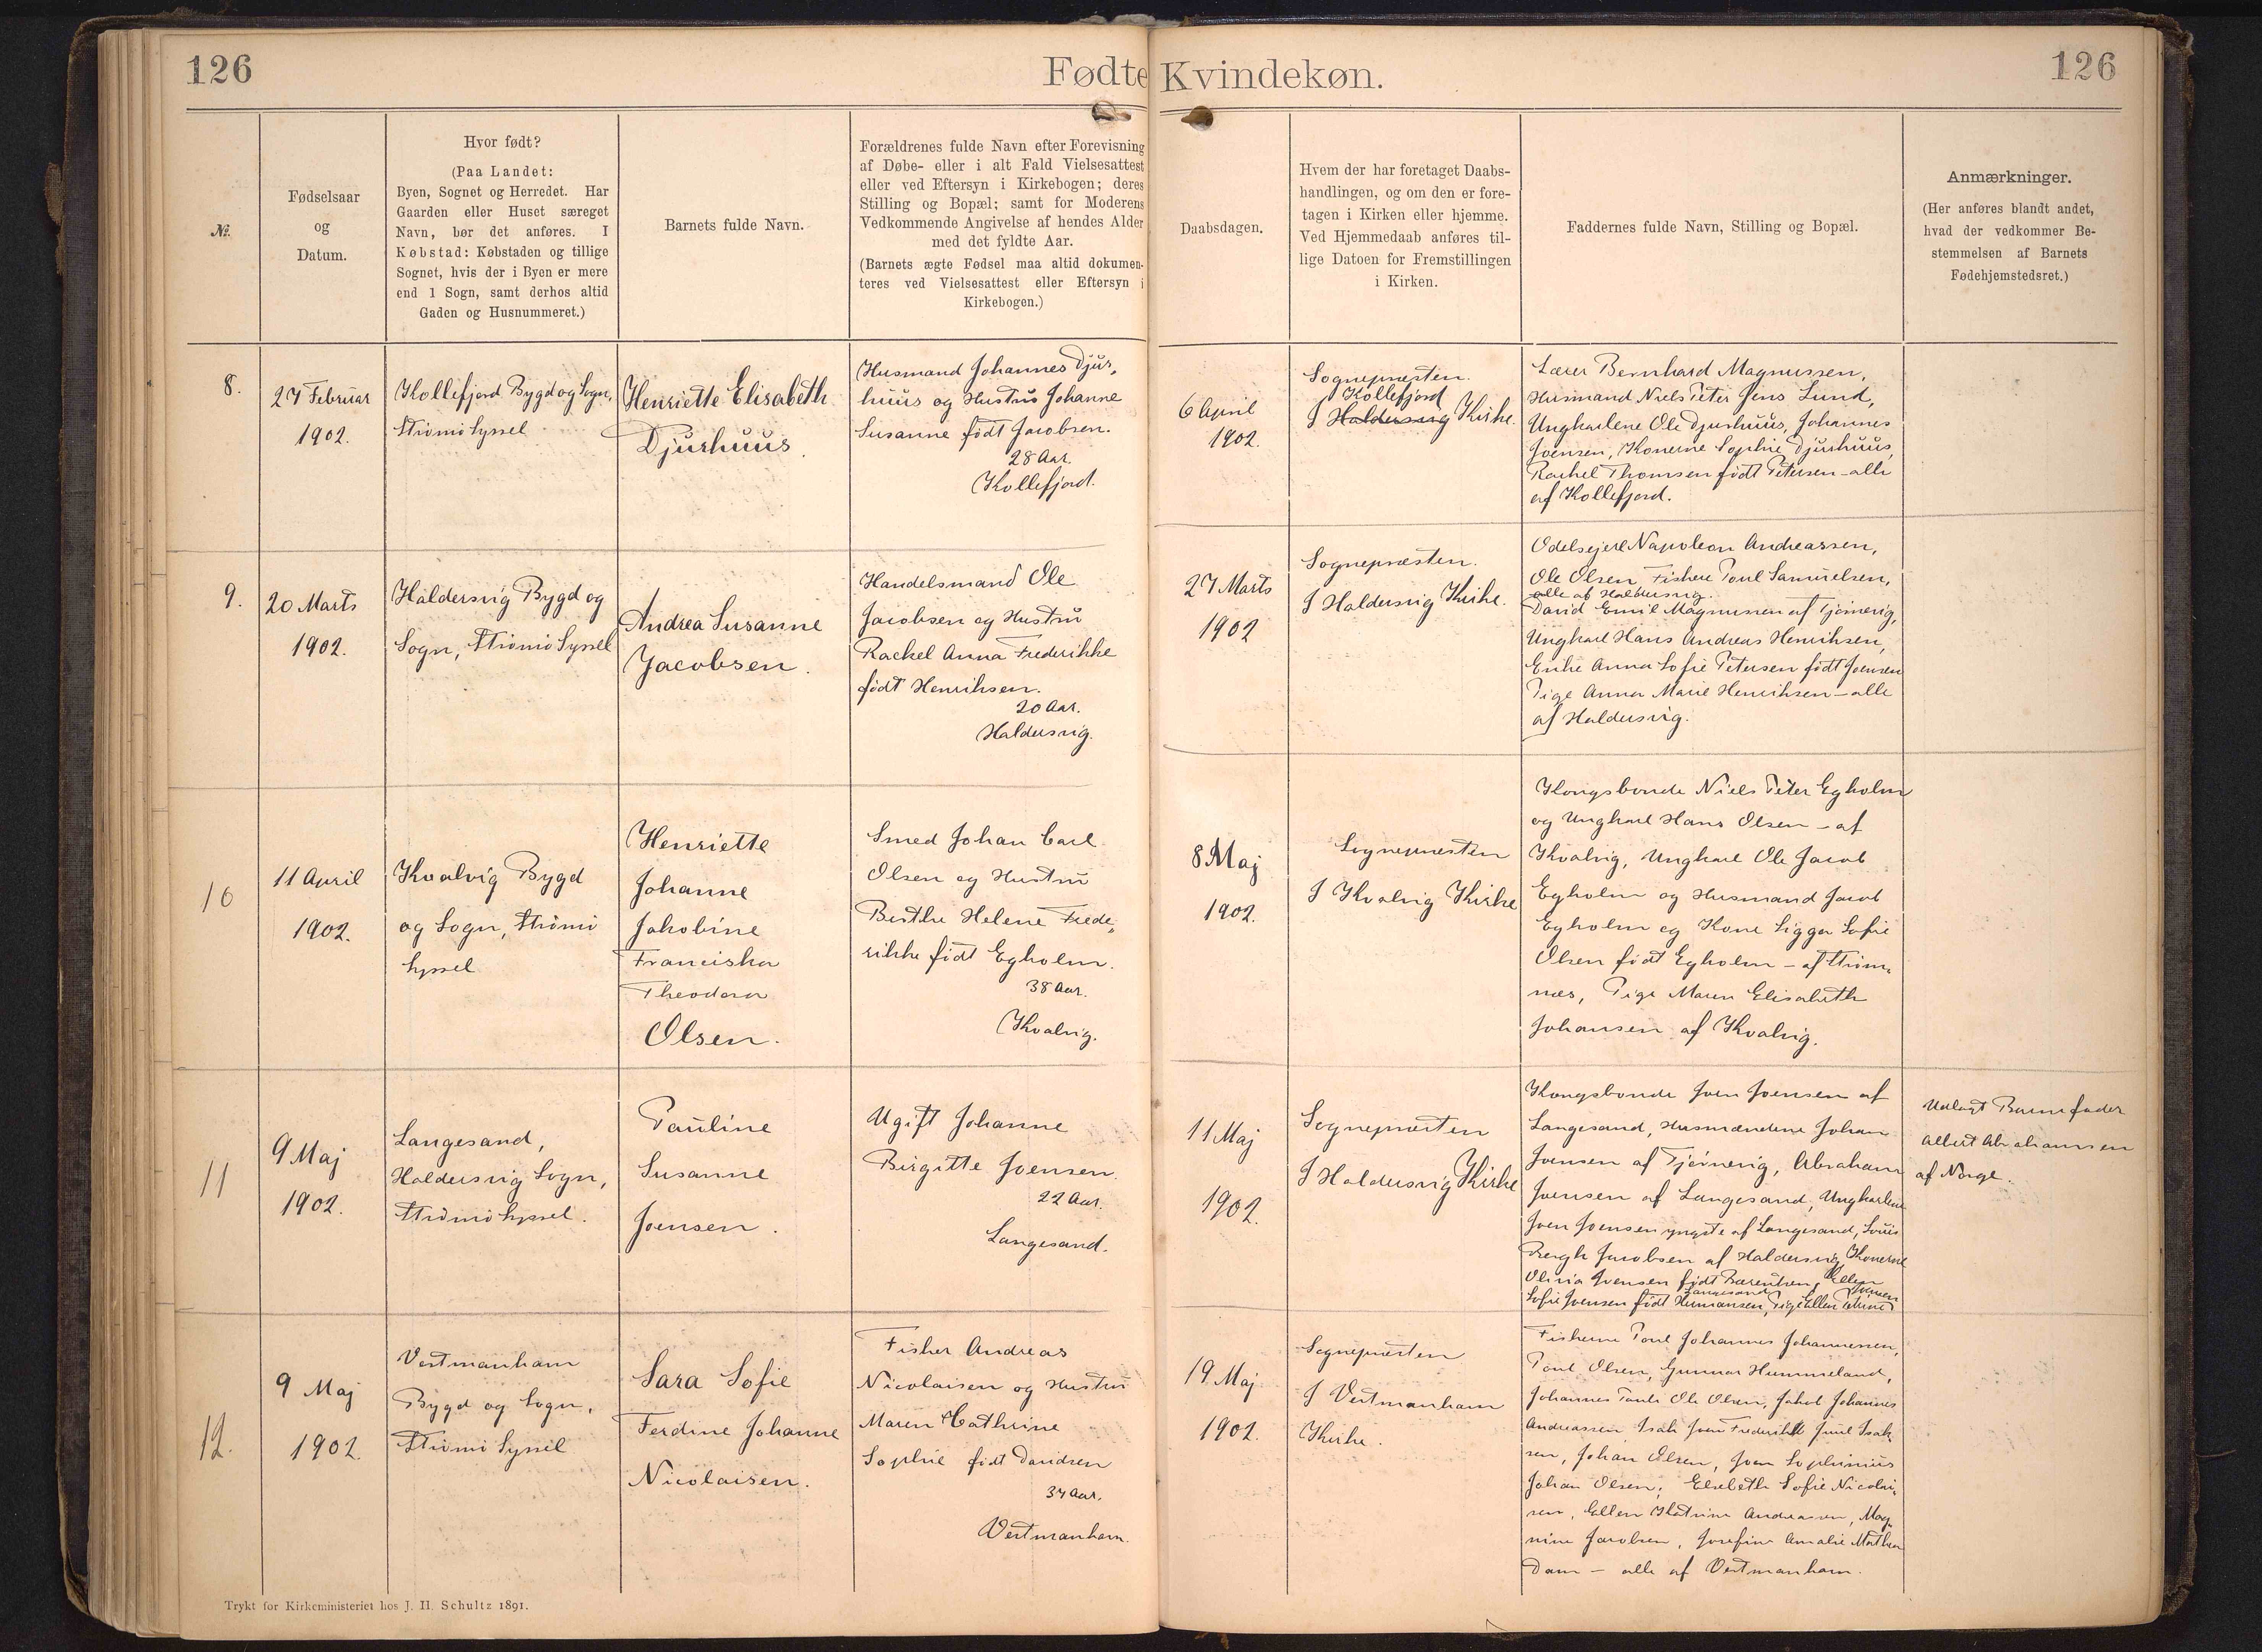 126
Fødte Kvindekøn.
126
№.
Fødselsaar
og
Datum.
Hvor født?
(Paa Landet:
Byen, Sognet og Herredet. Har
Gaarden eller Huset særeget
Navn, bør det anføres. I
Købstad: Købstaden og tillige
Sognet, hvis der i Byen er mere
end 1 Sogn, samt derhos altid
Gaden og Husnummeret.)
Barnets fulde Navn.
Forældrenes fulde Navn efter Forevisning
af Døbe- eller i alt Fald Vielsesattest
eller ved Eftersyn i Kirkebogen; deres
Stilling og Bopæl; samt for Moderens
Vedkommende Angivelse af hendes Alder
med det fyldte Aar.
(Barnets ægte Fødsel maa altid dokumen-
teres ved Vielsesattest eller Eftersyn i
Kirkebogen.)
Daabsdagen.
Hvem der har foretaget Daabs-
handlingen, og om den er fore-
tagen i Kirken eller hjemme.
Ved Hjemmedaab anføres til-
lige Datoen for Fremstillingen
i Kirken.
Faddernes fulde Navn, Stilling og Bopæl.
Anmærkninger.
(Her anføres blandt andet,
hvad der vedkommer Be-
stemmelsen af Barnets
Fødehjemstedsret.)
8.
27 Februar
1902.
Kollefjord Bygd og Sogn,
Strömö Syssel
Henriette Elisabeth
Djurhuus.
Husmand Johannes Djur-
huus og Hustru Johanne
Susanne født Jacobsen.
28 Aar.
Kollefjord.
6 April
1902.
Sognepræsten.
Kollefjord
I Haldersvig Kirke.
Lærer Bernhard Magnussen,
Husmand Niels Peter Jens Lund,
Ungkarlene Ole Djurhuus, Johannes
Joensen, Konerne Sophie Djurhuus,
Rachel Thomsen født Petersen - alle
af Kollefjord.
9.
20 Marts
1902.
Haldersvig Bygd og
Sogn, Strömö Syssel
Andrea Susanne
Jacobsen.
Handelsmand Ole
Jacobsen og Hustru
Rachel Anna Frederikke
født Henriksen.
20 Aar.
Haldersvig.
27 Marts
1902
Sognepræsten.
I Haldersvig Kirke.
Odelsejere Napoleon Andreassen,
Ole Olsen, Fiskere Poul Samuelsen,
alle af Haldersvig.
David Emil Magnussen af Tjörnevig,
Ungkarl Hans Andreas Henriksen,
Enke Anna Sofie Petersen født Joensen
Pige Anna Marie Henriksen - alle
af Haldersvig.
10
11 April
1902.
Kvalvig Bygd
og Sogn, Strömö
Syssel
Henriette
Johanne
Jakobine
Franciska
Theodora
Olsen.
Smed Johan Carl
Olsen og Hustru
Berthe Helene Frede-
rikke født Egholm.
38 Aar.
Kvalvig.
8 Maj
1902.
Sognepræsten
I Kvalvig Kirke
Kongsbonde Niels Peter Egholm
og Ungkarl Hans Olsen - af
Kvalvig, Ungkarl Ole Jacob
Egholm og Husmand Jacob
Egholm og Kone Sigga Sofie
Olsen født Egholm - af Ström-
næs, Pige Maren Elisabeth
Johansen af Kvalvig.
11
9 Maj
1902.
Langesand,
Haldersvig Sogn,
Strömö Syssel.
Pauline
Susanne
Joensen.
Ugift Johanne
Birgitte Joensen.
22 Aar.
Langesand.
11 Maj
1902.
Sognepræsten
I Haldersvig Kirke
Kongsbonde Joen Joensen af
Langesand, Husmændene Johan
Joensen af Tjörnevig, Abraham
Joensen af Langesand, Ungkarlene
Joen Joensen yngste af Langesand, Louis
Bergh Jacobsen af Haldersvig, Konerne
Olivia Joensen født Bærentsen, Ellen
Langesand Joensen
Sofie Joensen født Hermansen, Pige Ellen
Udlagt Barnefader
Albert Abrahamsen
af Norge.
12.
9 Maj
1902.
Vestmanhavn
Bygd og Sogn,
Strömö Syssel
Sara Sofie
Ferdine Johanne
Nicolaisen.
Fisker Andreas
Nicolaisen og Hustru
Maren Cathrine
Sophie født Davidsen
37 Aar.
Vestmanhavn.
19 Maj
1902.
Sognepræsten
I Vestmanhavn
Kirke.
Fiskerne Poul Johannes Johannessen,
Poul Olsen, Gunnar Hummeland,
Johannes Ole Olsen, Jakob Johannes
Andreassen Isak Joen Frederik Juul Isak-
sen, Johan Olsen, Joen Sophinius
Johan Olsen; Elsebeth Sofie Nicolai-
sen, Ellen Katrine Andreasen, Mag-
nine Jacobsen, Josefine Amalie Mathea
Dam - alle af Vestmanhavn.
Trykt for Kirkeministeriet hos J. H. Schultz 1891.